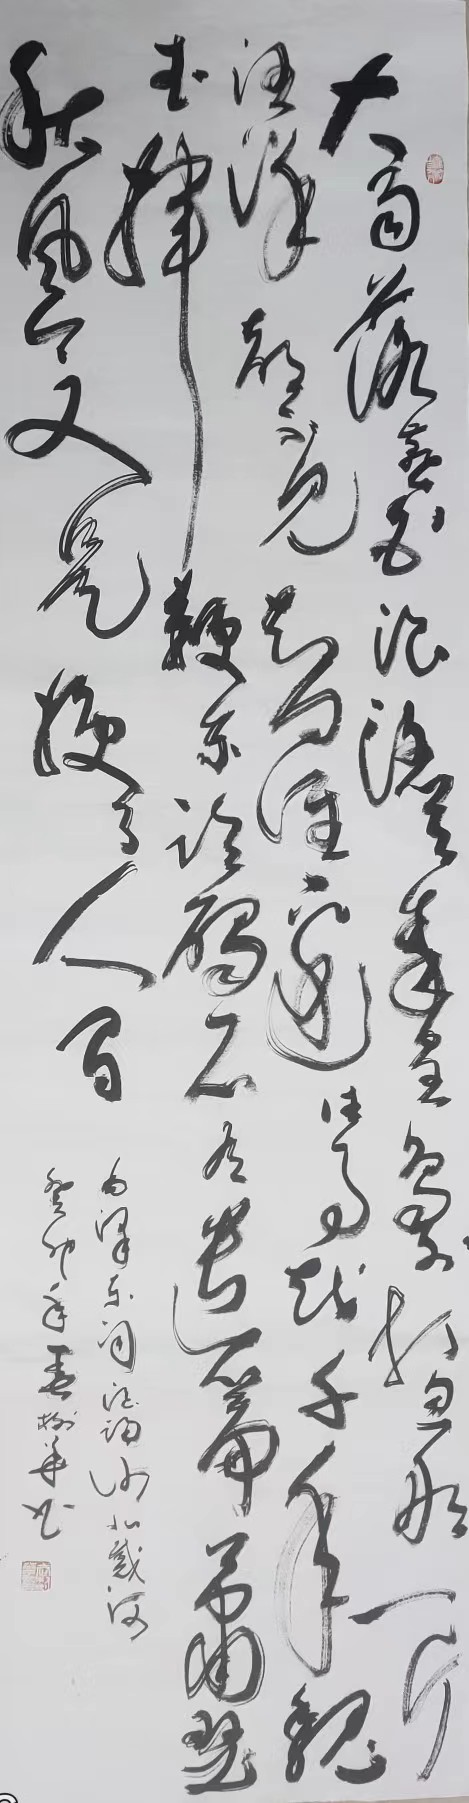 大雨落幽燕白浪滔天秦皇岛外打鱼船一片
汪洋都不见知向谁边往事越千年魏
武挥鞭东临碣石有遗篇萧瑟
秋风今又是换了人间
毛泽东词浪淘沙北戴河
癸卯年春树华书